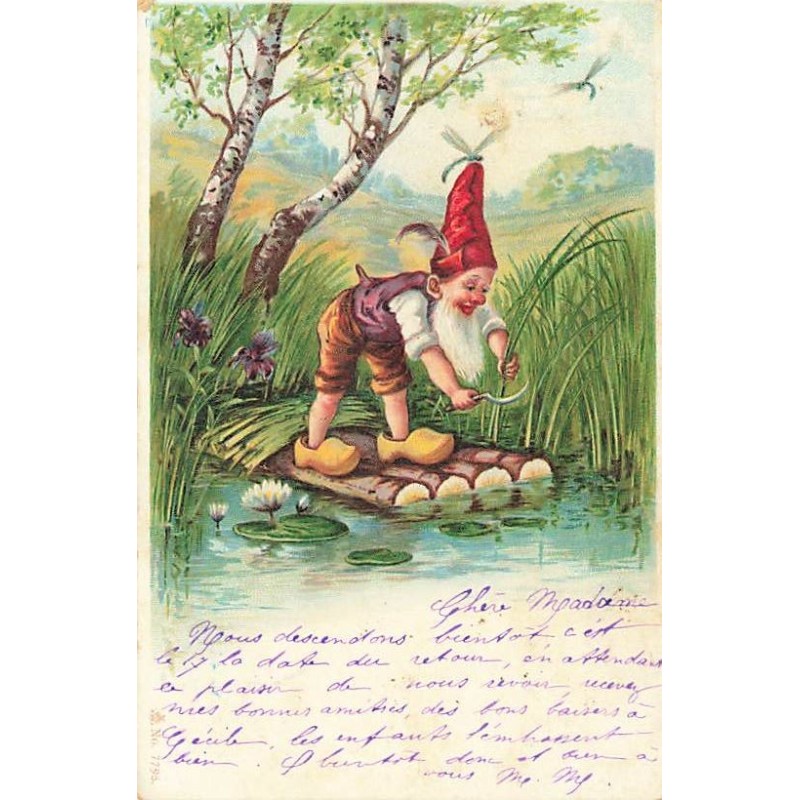 Chère Madame
Nous descendons bientôt c'est
le 17 la date du retour, en attendant
ce plaisir de nous revoir recevez
mes bonnes amitiés, des bons baisers à
Cécile, les enfants l'embrassent
bien. A bientôt donc et bien à
vous M. M.
No. 779